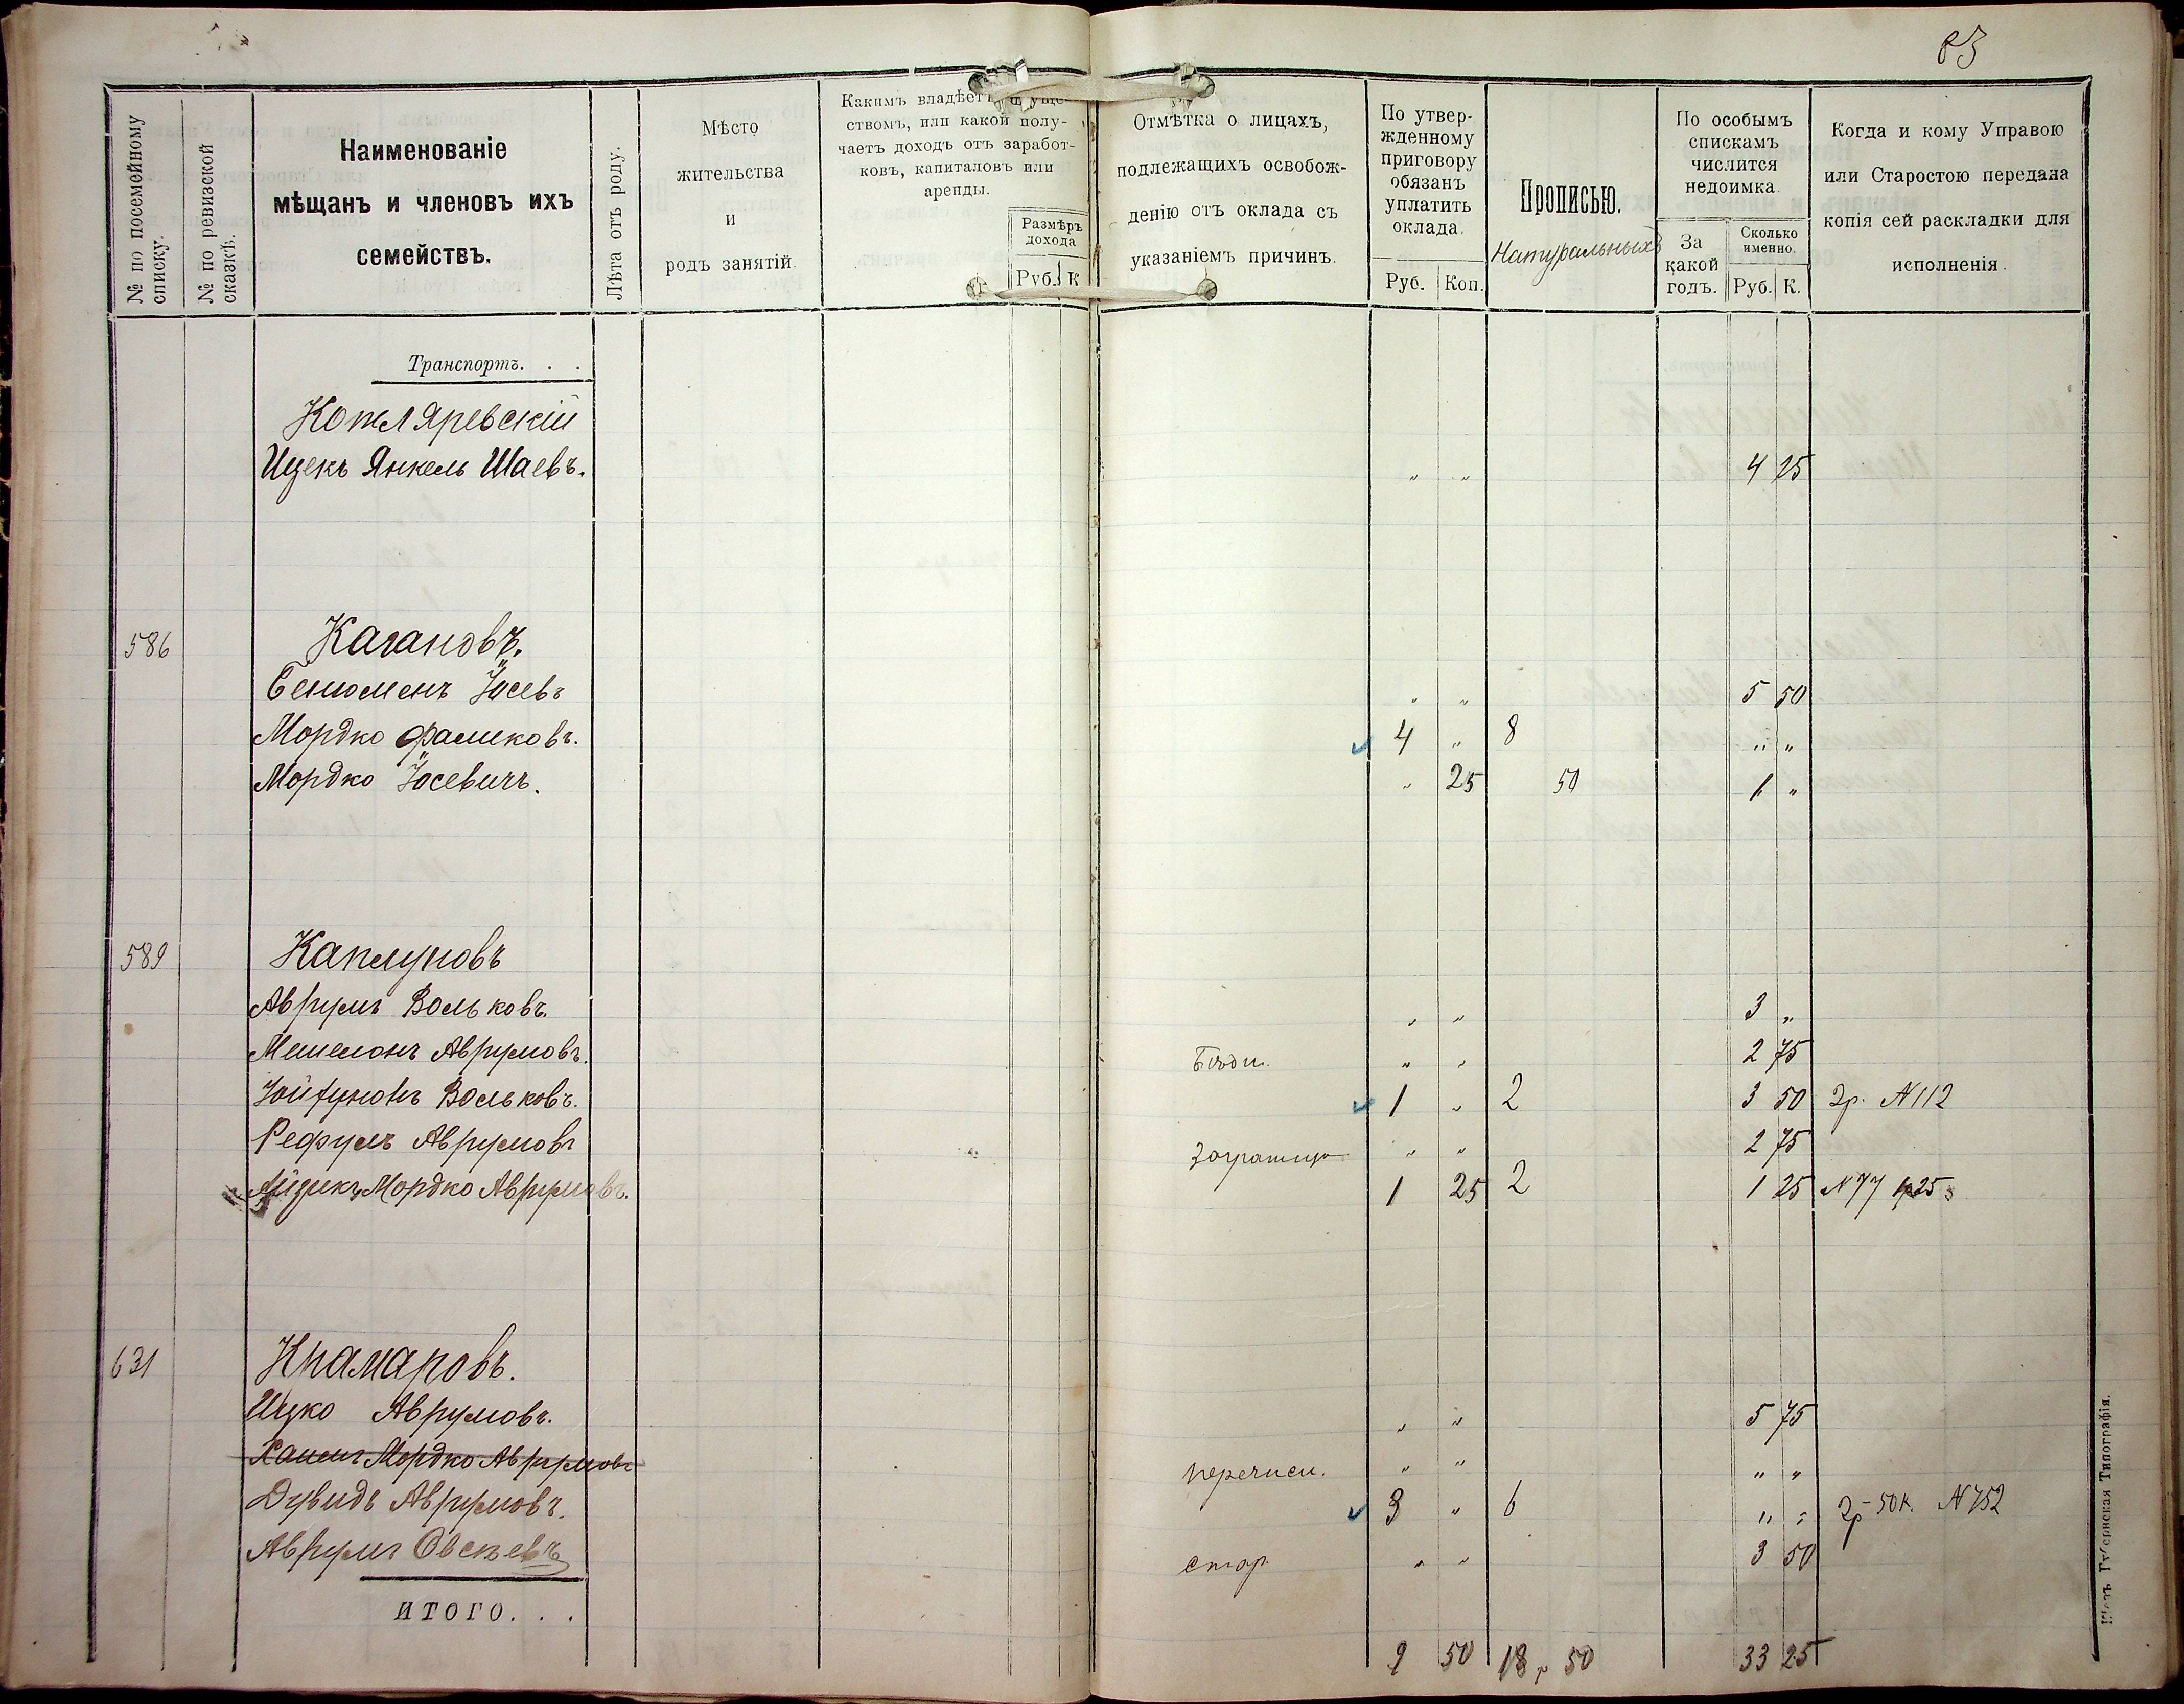 83
№ по посемейному списку.
№ по ревизской сказкѣ.
Наименованіе
мѣщанъ и членовъ ихъ
семействъ.
Лѣта отъ роду.
Мѣсто
жительства
и
родъ занятій
Какимъ владѣетъ
ствомъ, или какой полу-
чаетъ доходъ отъ заработ-
ковъ, капиталовъ или
аренды.
Размѣръ
дохода
Руб. К
Отмѣтка о лицахъ,
подлежащихъ освобож-
денію отъ оклада съ
указаніемъ причинъ.
По утвер-
жденному
приговору
обязанъ
уплатить
оклада
Руб. Коп.
Прописью.
Натуральныхъ
По особымъ
спискамъ
числится
недоимка.
За
какой
годъ.
Сколько
именно.
Руб. К.
Когда и кому Управою
или Старостою передана
копія сей раскладки для
исполненія.
Транспортъ. . .
Котляревскій
Ицекъ Янкель Шаевъ. " " 4 25
586 Кагановъ.
Бенюменъ Іосевъ " " 5 50
Мордко Фаликовъ. 4 " 8 " "
Мордко Іосевичъ. " 25 50 1 "
589 Каплуновъ
Аврумъ Вольковъ. " " 3 "
Мешелонъ Аврумовъ. Бѣдн. " " 2 75
Вольковъ. 1 " 2 3 50 2р. N 112
Рефулъ Аврумовъ заграницу " " 2 75
Айзикъ Мордко Аврумовъ. 1 25 2 1 25 N 77 1р25
631 Крамаровъ.
Ицко Аврумовъ. " " 5 75
Хаимъ Мордко Аврумовъ перечисл. " " " "
Дувидъ Аврумовъ. 3 " 6 " " 2р 50к. N 752
Аврумъ Овсѣевъ стар. " " 3 50
ИТОГО. . .
9 50 18 р 50 33 25
Губернская Типографія.